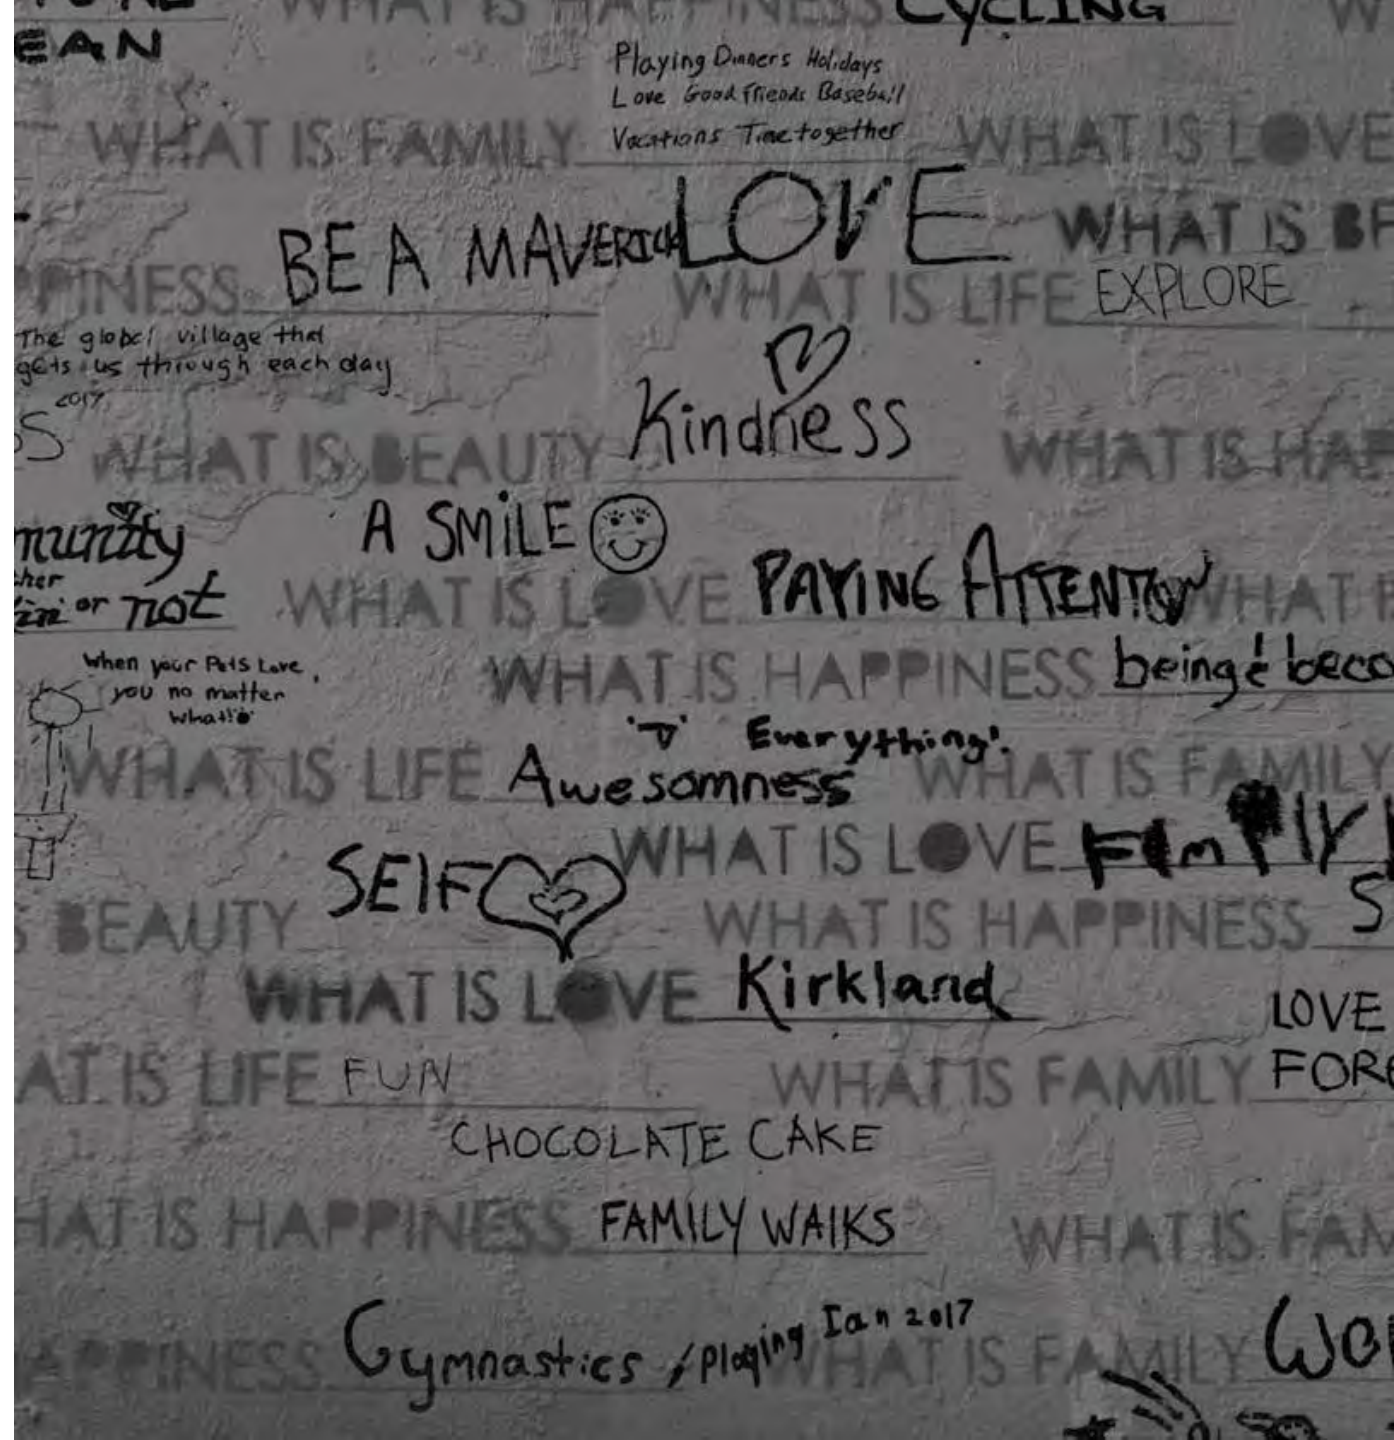 WHAT IS HAPPINESS CYCLING
EAN
Playing Dinners Holidays
Love Good Friends Baseball
WHAT IS FAMILY Vacations Time together WHAT IS LOVE
BE A MAVERICK LOVE WHAT IS BE
PPINESS WHAT IS LIFE EXPLORE
The global village that
gets us through each day
2017
WHAT IS BEAUTY Kindness WHAT IS HAP
munity A SMiLE
her
or not WHAT IS LOVE PAYING ATTENTION WHAT
When your Pets Love WHAT IS HAPPINESS being & beco
you no matter
what!
Everything!
WHAT IS LIFE Awesomness WHAT IS FAMILY
WHAT IS LOVE
SElF
S BEAUTY WHAT IS HAPPINESS S
WHAT IS LOVE Kirkland
LOVE
AT IS LIFE FUN WHAT IS FAMILY FORE
CHOCOLATE CAKE
HAT IS HAPPINESS FAMILY WAlKS WHAT IS FAM
APPINESS Gymnastics / Playing Ian 2017 WHAT IS FAMILY Wo